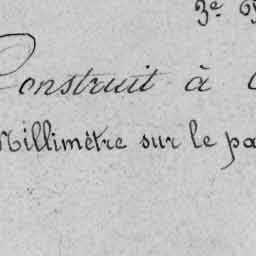 3e
Construit à
Millimètre sur le pa